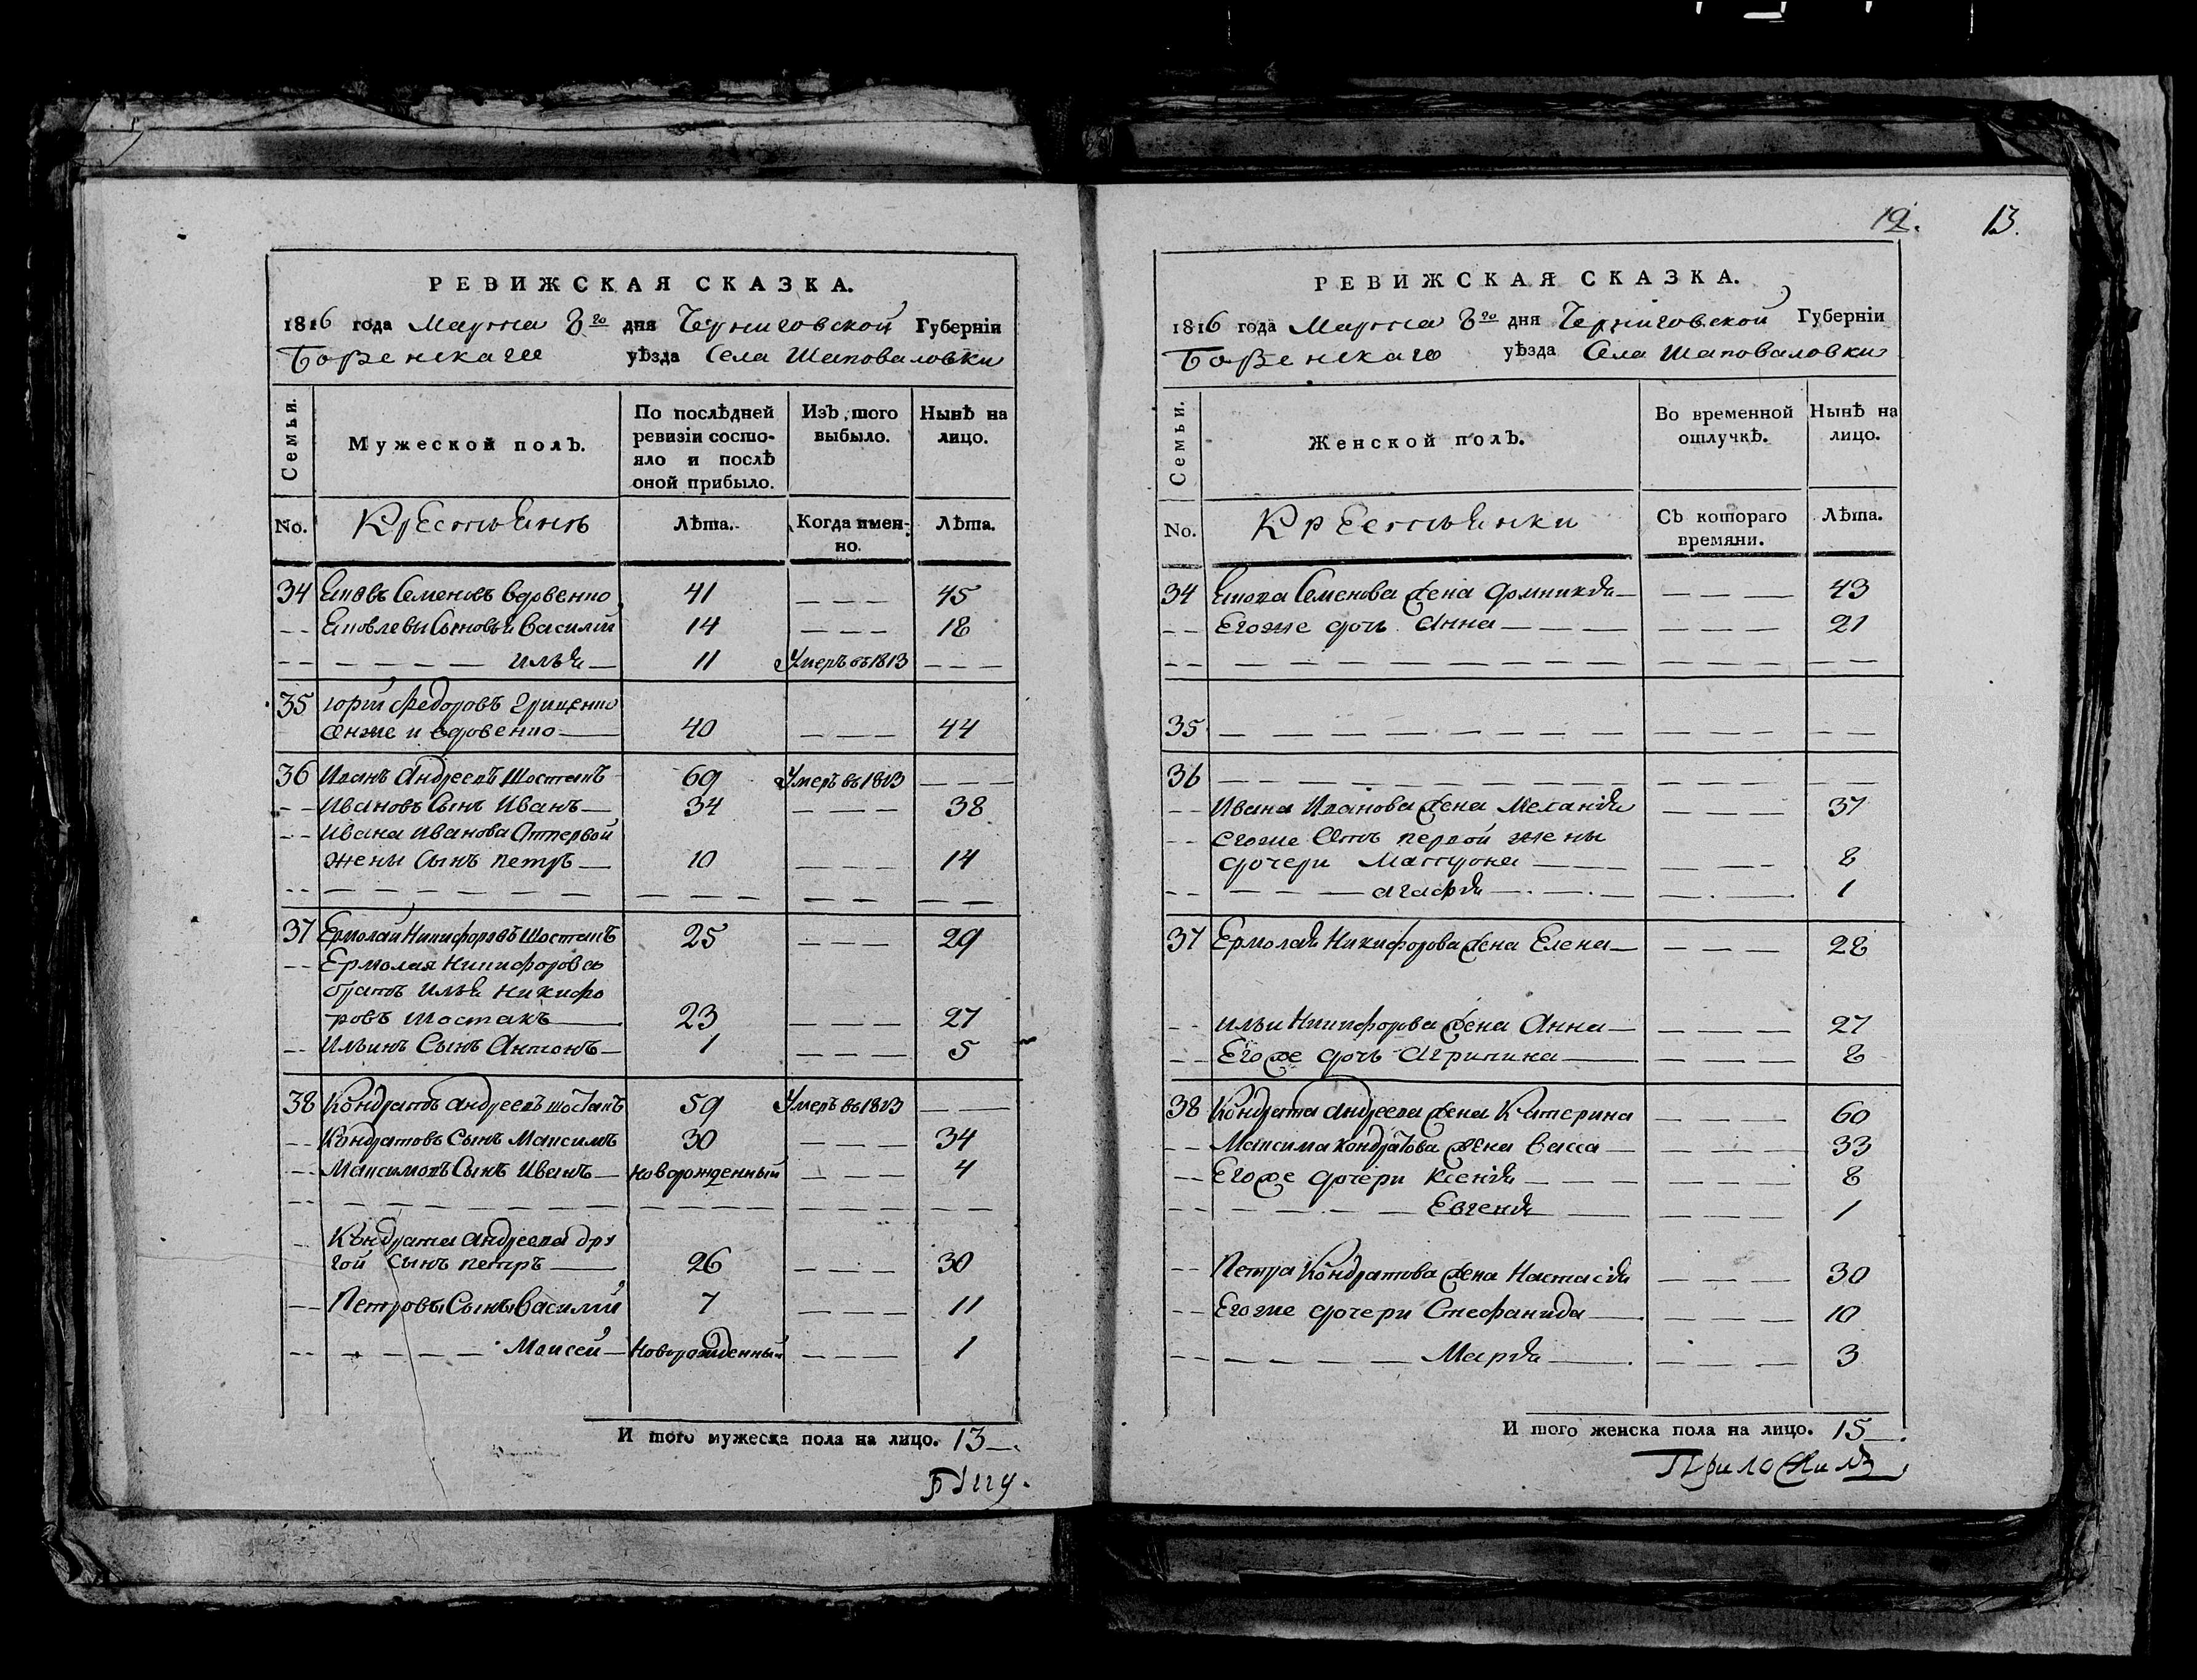 РЕВИЖСКАЯ СКАЗКА.
1816 года Марта 8го дня Черниговской Губерніи
Борзенскаго уѣзда Села Шаповаловки
Семьи.
Мужеской полъ.
По послѣдней ревизіи состояло и послѣ оной прибыло.
Изъ того выбыло.
Нынѣ на лицо.
No. Крестьянъ Лѣта. Когда имен-но. Лѣта.
34 Яковъ Семеновъ Вдовенко 41 — — — 45
Яковлевы Сыновья Василій 14 — — — 18
— — — — — Илья — 11 Умеръ въ 1813 — — —
35 Юрій Федоровъ Гриценко
онже и Вдовенко — 40 — — — 44
36 Иванъ Андреевъ Шостакъ 69 Умеръ въ 1813 — — —
Ивановъ Сынъ Иванъ — 34 — — — 38
Ивана Иванова Отпервой
жены Сынъ Петръ — 10 — — — 14
37 Ермолай Никифоровъ Шостакъ 25 — — — 29
Ермолая Никифорова
братъ Илья Никифо
ровъ Шостакъ — 23 — — — 27
Ильинъ Сынъ Антонъ — 1 — — — 5
38 Кондратъ Андреевъ Шостакъ 59 Умеръ въ 1813 — —
Кондратовъ Сынъ Максимъ 30 — — — 34
Максимовъ Сынъ Иванъ — новорожденный — — — 4
Кондрата Андреева дру
гой Сынъ Петръ — 26 — — — 30
Петровы Сыны Василій 7 — — — 11
— — — — — Моисей — новорожденный — — — 1
И того мужеска пола на лицо. 13 —.
12. 13.
РЕВИЖСКАЯ СКАЗКА.
1816 года Марта 8го дня Черниговской Губерніи
Борзенскаго уѣзда Села Шаповаловки
Семьи.
Женской полъ.
Во временной отлучкѣ.
Нынѣ на лицо.
No. Крестьянки Съ котораго времяни. Лѣта.
34 Якова Семенова жена Домникія — — — — 43
Егоже дочь Анна — — — — — — 21
35
36
Ивана Иванова жена Меланія — — — 37
Егоже Отъ первой жены
дочери Матрона — — — 8
— — — Агафія — — — 1
37 Ермолая Никифорова жена Елена — — — — 28
Ильи Никифорова жена Анна — — — — 27
Егоже дочь Агрипина — — — — 8
38 Кондрата Андреева жена Катерина — — — 60
Максима Кондратова жена Васса — — — — 33
Егоже дочери Ксенія — — — — — — 8
— — — — — Евгенія — — — — 1
Петра Кондратова жена Настасія — — — 30
Егоже дочери Стефанида — — — — 10
— — — — — Марія — — — — 3
И того женска пола на лицо. 15 —.
Приложилъ